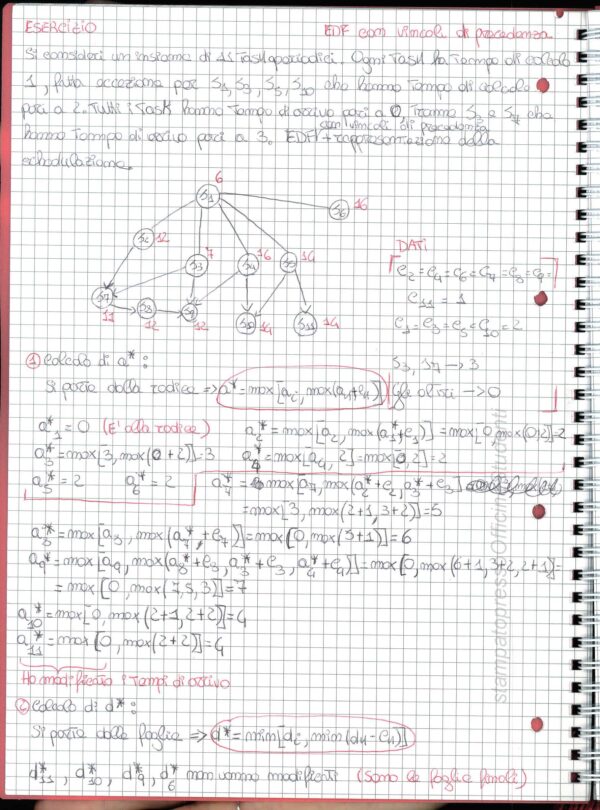 ESERCIZIO EDF con vincoli di precedenza
Si consideri un insieme di 11 Task aperiodici. Ogni Task ha Tempo di calcolo
1, fatta eccezione per J1, J3, J5, J10 che hanno tempo di calcolo
pari a 2. Tutti i Task hanno Tempo di arrivo pari a 0, Tranne J3 e J7 che
con vincoli di precedenza
hanno Tempo di arrivo pari a 3. EDF + rappresentazione della
schedulazione.
6
J1
J6 16
J2 12
J3 7
J4 16
J5 14
J7 11
J8 12
J9 12
J10 14
J11 14
DATI
e2=e4=e6=e7=e8=e9=
e11=1
e1=e3=e5=e10=2
J3, J7→3
gli altri→0
① Calcolo di a*:
Si parte dalla radice ⇒ a*=max[ai, max(ak+ek)]
a*1=0 (E' alla radice) a*2=max[a2, max(a*1+e1)]=max[0, max(0,2)]=2
a*3=max[3, max(0+2)]=3 a*4=max[a4, 2]=max[0,2]=2
a*5=2 a*6=2 a*7=max[a7, max(a*2+e2, a*3+e3)]
=max[3, max(2+1, 3+2)=5
a*8=max[a8, max(a*7+e7)]=max[0, max(5+1)]=6
a*9=max[a9, max(a*8+e8, a*3+e3, a*4+e4)]=max[0, max(6+1, 3+2, 2+1)]=
=max[0, max(7,5,3)]=7
a*10=max[0, max(2+1, 2+2)]=4
a*11=max[0, max(2+2)]=4
Ho modificato i Tempi di arrivo
② Calcolo di d*:
Si parte dalle foglie ⇒ d*=min[di, min(dk-ek)]
d*11, d*10, d*9, d*6 non vanno modificati (Sono le foglie finali)
stampato presso Officine Studenti